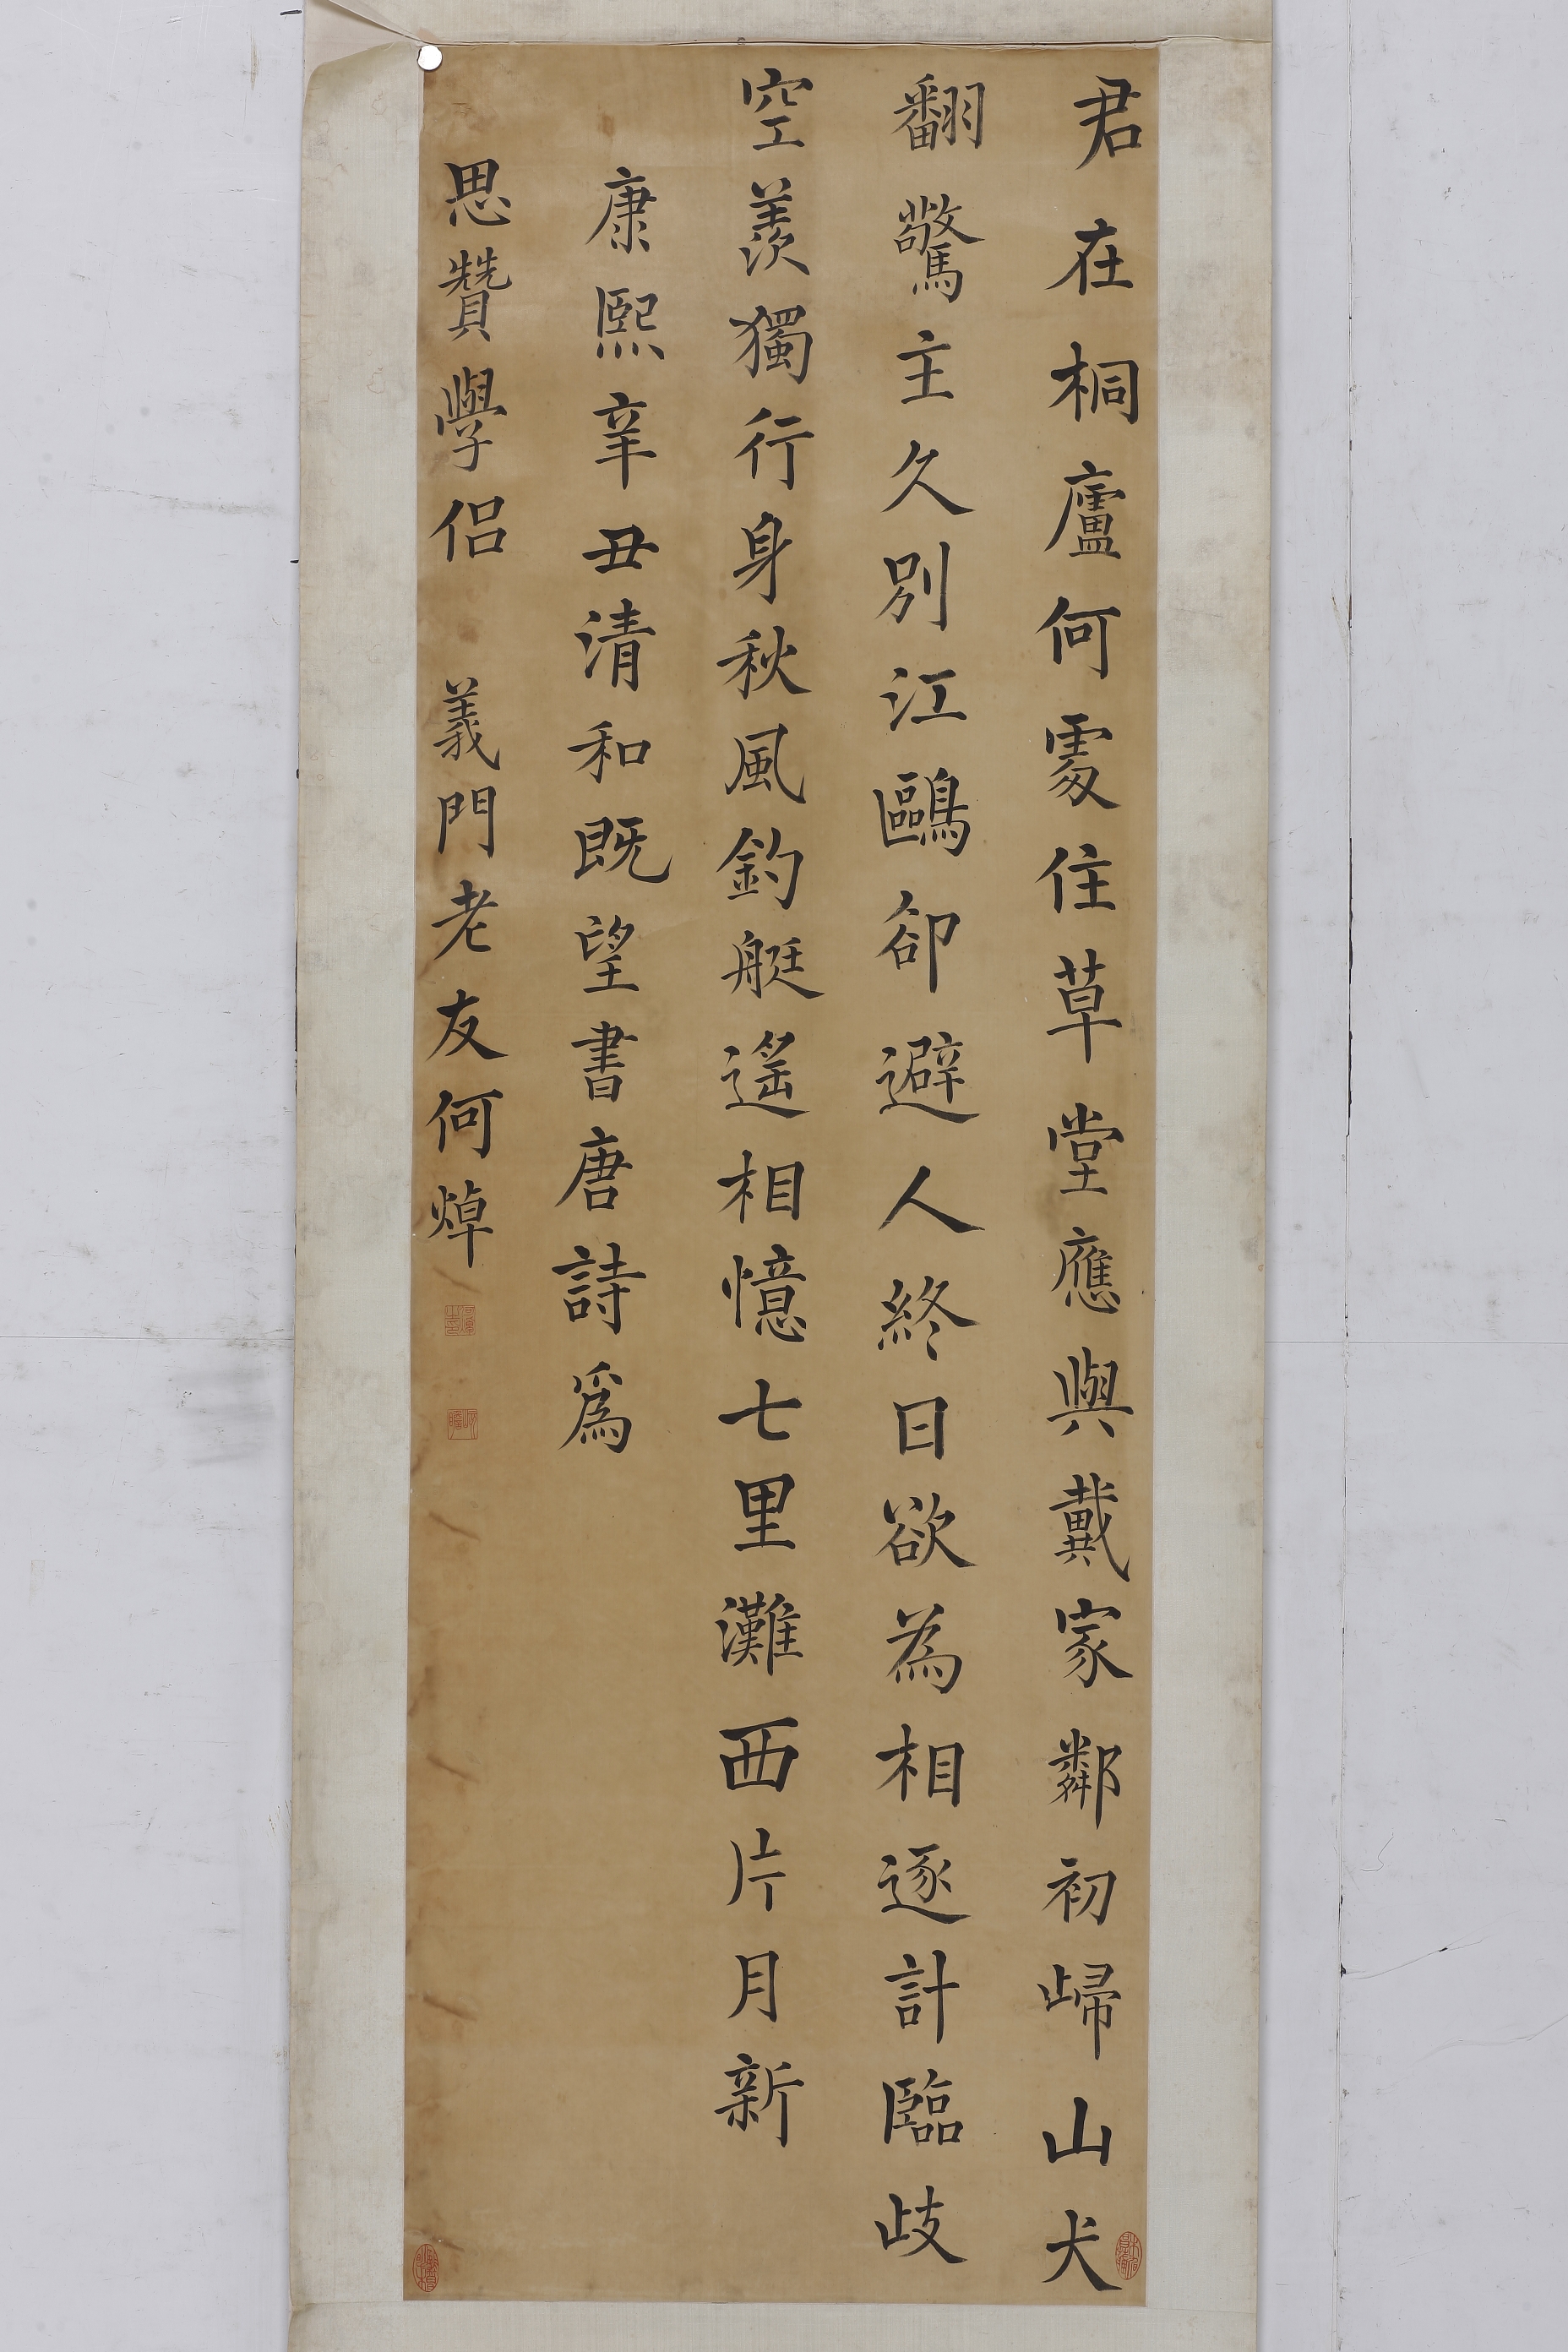 君在桐廬何處住草堂應與戴家鄰初歸山犬
翻驚主久別江鷗卻避人終日欲為相逐計臨歧
空羨獨行身秋風釣艇遙相憶七里灘西片月新
康熙辛丑清和既望書唐詩爲
思贊學侶 義門老友何焯